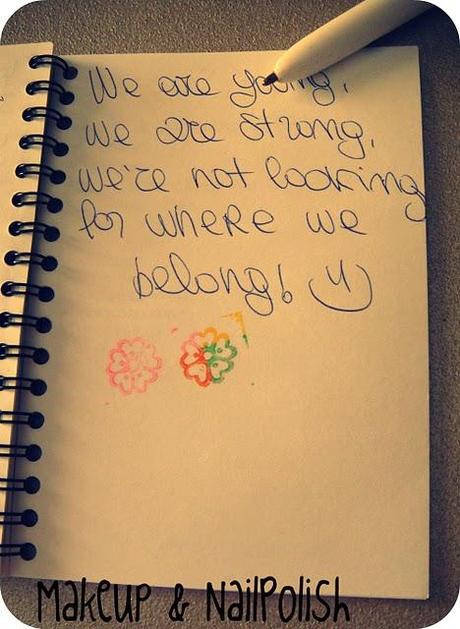 We are young,
we are strong,
we're not looking
for where we
belong! :)
Makeup & NailPolish